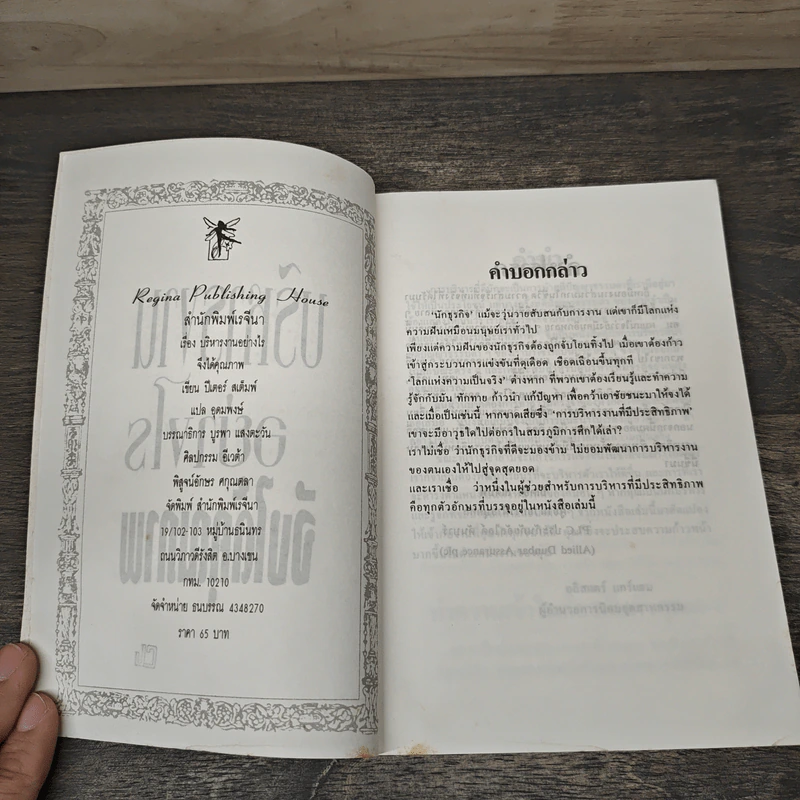 Regina Publishing House
สำนักพิมพ์เรจีนา
เรื่อง บริหารงานอย่างไร
จึงได้คุณภาพ
เขียน ปีเตอร์ สเต็มพ์
แปล อุดมพงษ์
บรรณาธิการ บูรพา แสงตะวัน
ศิลปกรรม อีเวต้า
พิสูจน์อักษร ศกุณตลา
จัดพิมพ์ สำนักพิมพ์เรจีนา
19/102-103 หมู่บ้านธนินทร
ถนนวิภาวดีรังสิต อ.บางเขน
กทม. 10210
จัดจำหน่าย ธนบรรณ 4348270
ราคา 65 บาท
คำบอกกล่าว
'นักธุรกิจ' แม้จะวุ่นวายสับสนกับการงาน แต่เขาก็มีโลกแห่ง
ความฝันเหมือนมนุษย์เราทั่วไป
เพียงแต่ความฝันของนักธุรกิจต้องถูกจับโยนทิ้งไป เมื่อต้องก้าว
เข้าสู่กระบวนการแข่งขันที่ดุเดือด เชือดเฉือนขึ้นทุกที
'โลกแห่งความเป็นจริง' ต่างหาก ที่พวกเขาต้องเรียนรู้และทำความ
รู้จักกับมัน ทักทาย ก้าวนำ แก้ปัญหา เพื่อคว้าเอาชัยชนะมาให้จงได้
และเมื่อเป็นเช่นนี้ หากขาดเสียซึ่ง 'การบริหารงานที่มีประสิทธิภาพ'
เขาจะมีอาวุธใดไปต่อกรในสมรภูมิการศึกได้เล่า?
เราไม่เชื่อ ว่านักธุรกิจที่ดีจะมองข้าม ไม่ยอมพัฒนาการบริหารงาน
ของตนเองให้ไปสู่จุดสุดยอด
และเราเชื่อ ว่าหนึ่งในผู้ช่วยสำหรับการบริหารที่มีประสิทธิภาพ
คือทุกตัวอักษรที่บรรจุอยู่ในหนังสือเล่มนี้